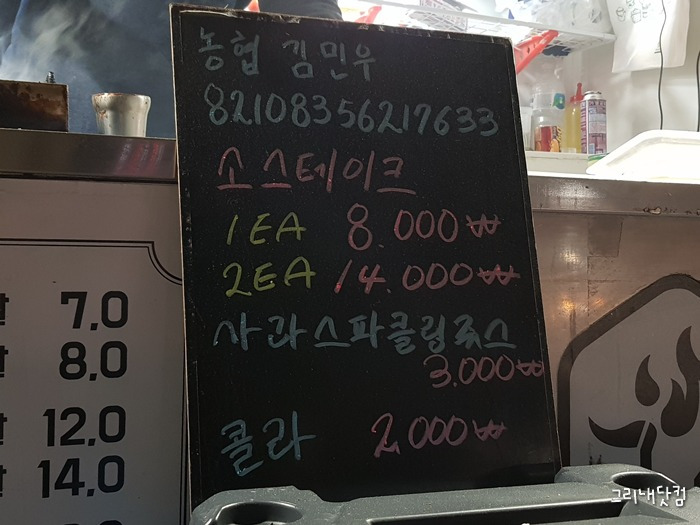 농협 김민우
82108356217633
소스테이크
1EA 8.000₩
2EA 14.000₩
사과스파클링쥬스
3.000₩
콜라 2,000₩
7,0
8,0
12,0
14,0
그리내닷컴